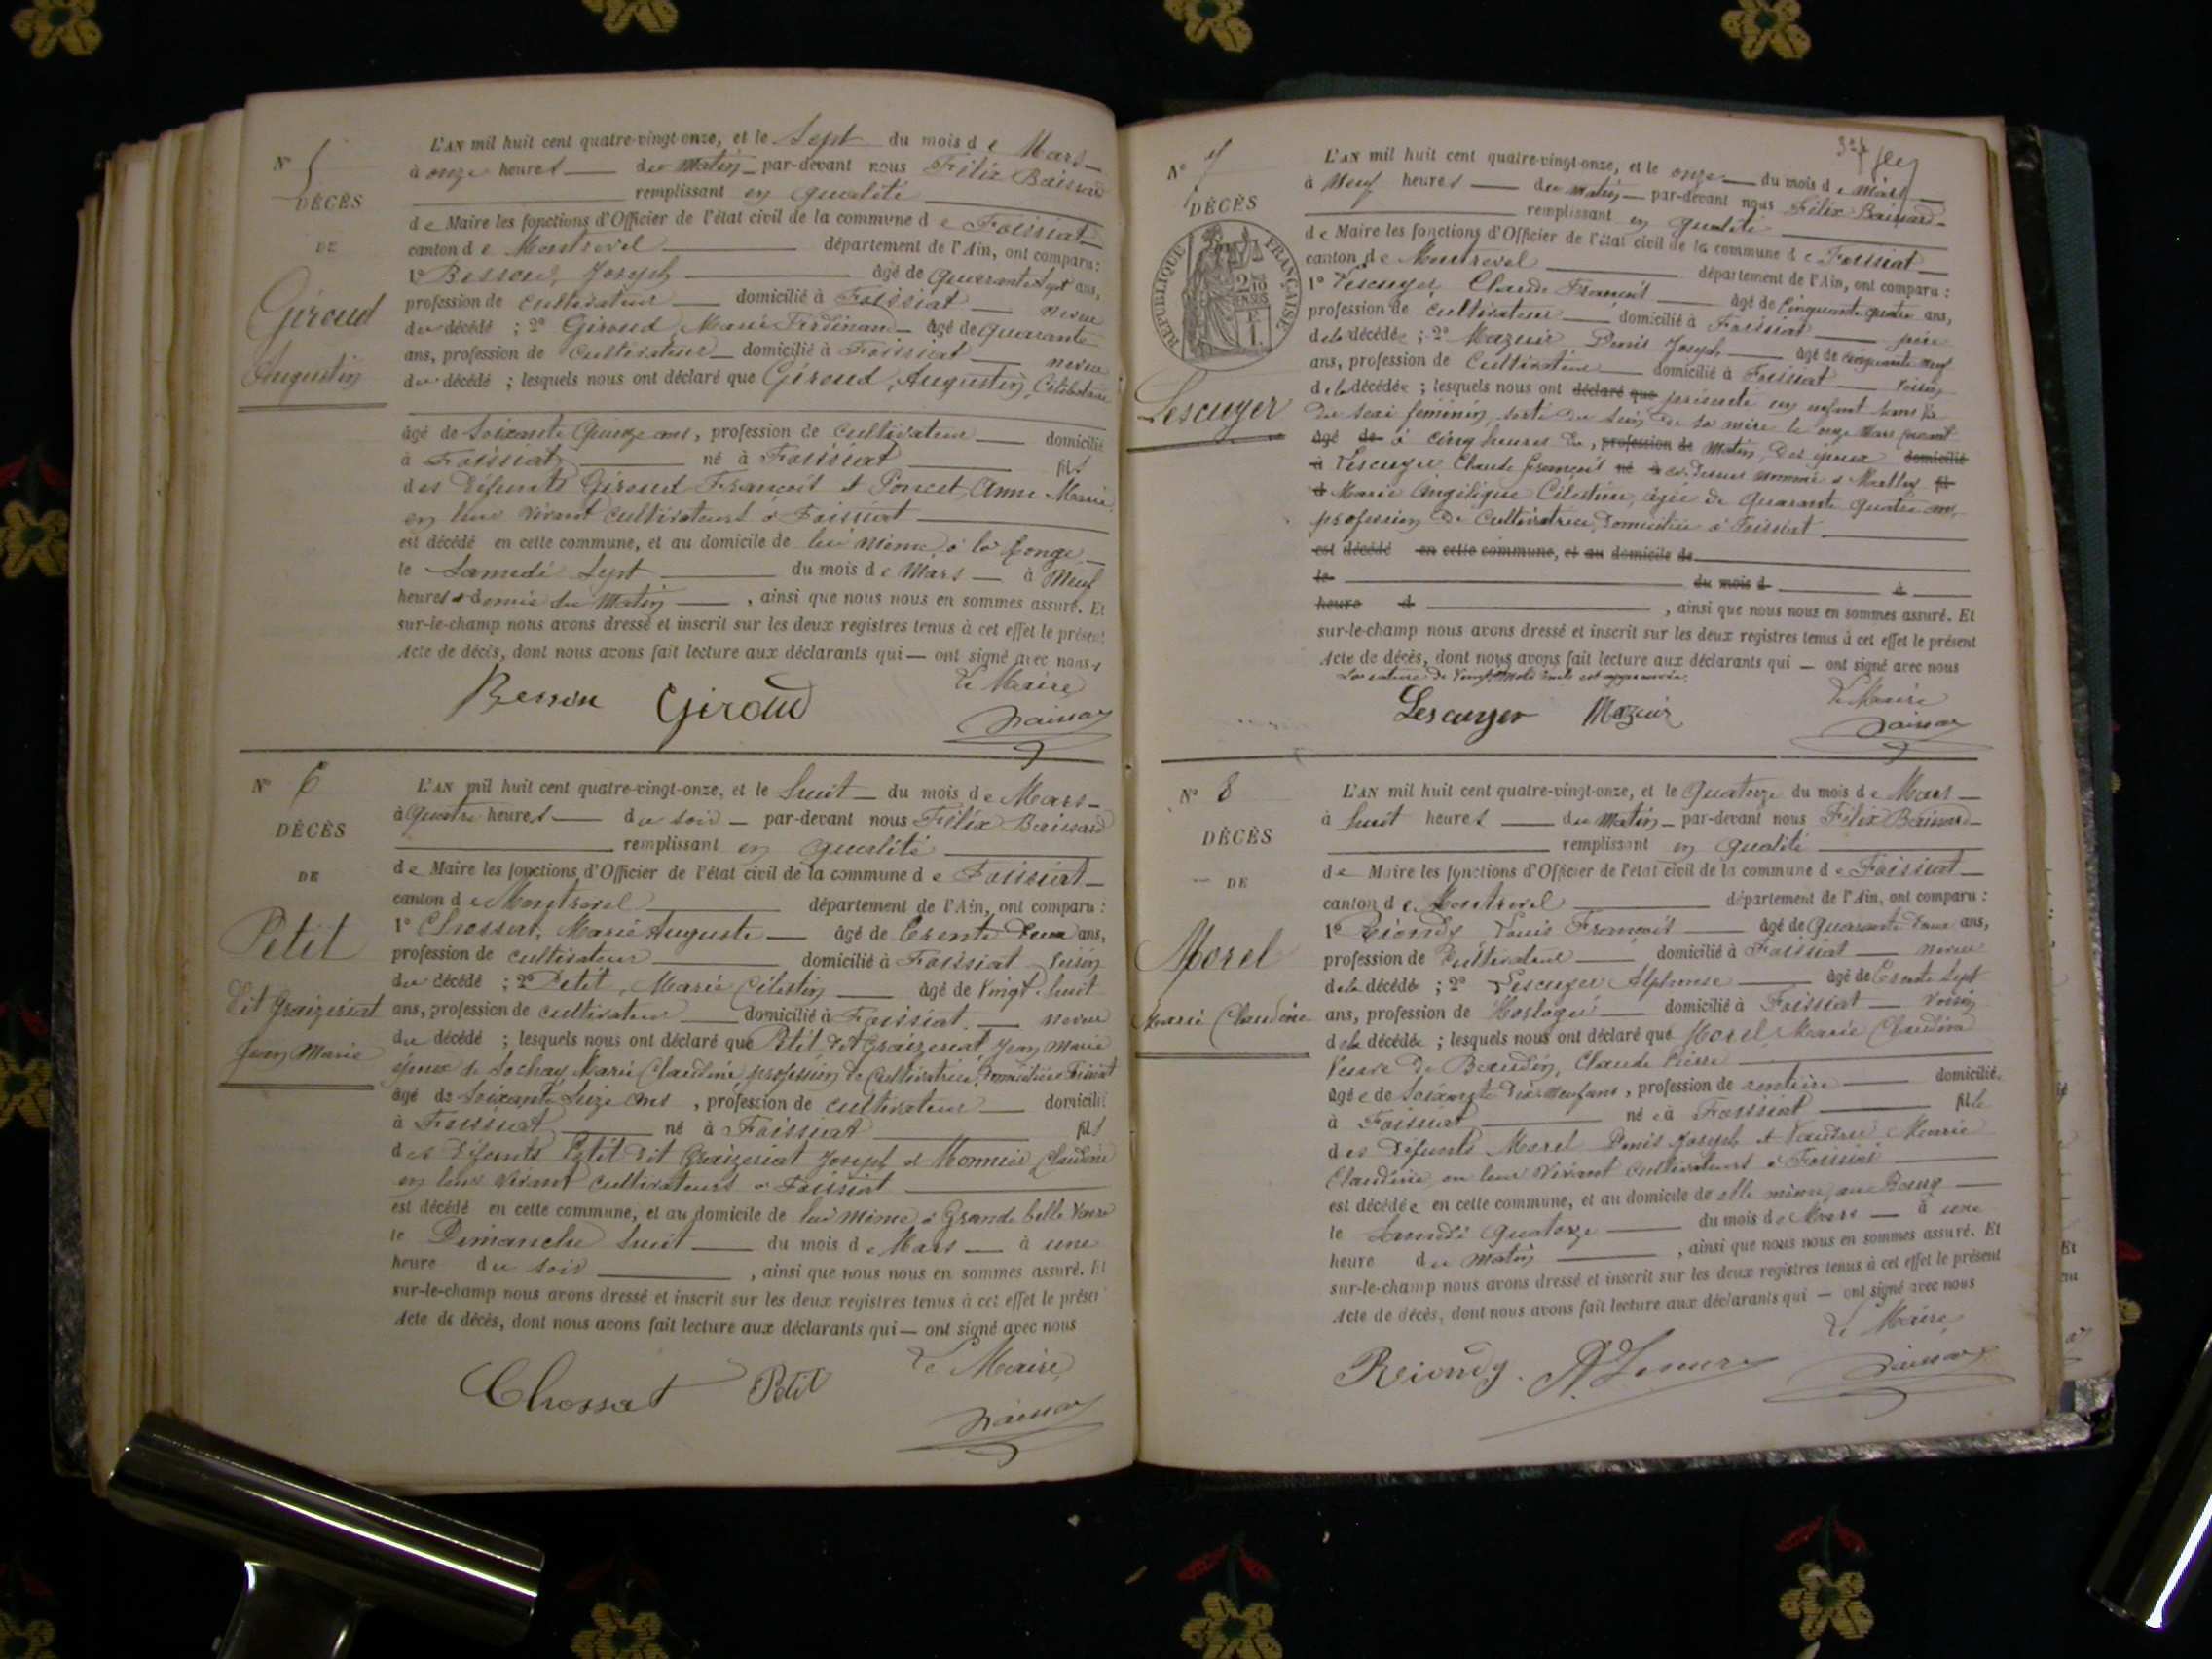 N° 5
DÉCÈS
DE
Giroud
Augustin
L'AN mil huit cent quatre-vingt-onze, et le Sept du mois de Mars
à onze heures du matin par-devant nous Félix Baissard
remplissant en qualité
de Maire les fonctions d'Officier de l'état civil de la commune de Foissiat
canton de Montrevel département de l'Ain, ont comparu :
1° Besson, Joseph âgé de quarante sept ans,
profession de cultivateur domicilié à Foissiat neveu
du décédé ; 2° Giroud, Marie Ferdinand âgé de quarante
ans, profession de cultivateur domicilié à Foissiat neveu
du décédé ; lesquels nous ont déclaré que Giroud, Augustin, Célibataire
âgé de soixante quinze ans, profession de cultivateur domicilié
à Foissiat né à Foissiat fils
des défunts Giroud François et Poncet, Anne Marie,
en leur vivant cultivateurs à Foissiat
est décédé en cette commune, et au domicile de lui même, à la
le Samedi Sept du mois de Mars à Neuf
heures & demie du Matin, ainsi que nous nous en sommes assuré. Et
sur-le-champ nous avons dressé et inscrit sur les deux registres tenus à cet effet le présent
Acte de décès, dont nous avons fait lecture aux déclarants qui ont signé avec nous
Le Maire
Besson Giroud Baissard
N° 6
DÉCÈS
DE
Petit
dit Graizeriat
Jean Marie
L'AN mil huit cent quatre-vingt-onze, et le huit du mois de Mars
à quatre heures du soir par-devant nous Félix Baissard
remplissant en qualité
de Maire les fonctions d'Officier de l'état civil de la commune de Foissiat
canton de Montrevel département de l'Ain, ont comparu :
1° Chossat, Marie Auguste âgé de trente deux ans,
profession de cultivateur domicilié à Foissiat voisin
du décédé ; 2° Petit, Marie Célestin âgé de vingt huit
ans, profession de cultivateur domicilié à Foissiat neveu
du décédé ; lesquels nous ont déclaré que Petit dit Graizeriat Jean Marie
époux de Sochay Marie Claudine profession de cultivatrice, domiciliée Foissiat
âgé de soixante seize ans, profession de cultivateur domicilié
à Foissiat né à Foissiat fils
des défunts Petit dit Graizeriat Joseph et Monnier Claudine
en leur vivant cultivateurs à Foissiat
est décédé en cette commune, et au domicile de lui même à Grande belle
le Dimanche huit du mois de Mars à une
heure du soir, ainsi que nous nous en sommes assuré. Et
sur-le-champ nous avons dressé et inscrit sur les deux registres tenus à cet effet le présent
Acte de décès, dont nous avons fait lecture aux déclarants qui ont signé avec nous
Le Maire
Chossat Petit Baissard
N° 7
DÉCÈS
RÉPUBLIQUE FRANÇAISE
Lescuyer
L'AN mil huit cent quatre-vingt-onze, et le onze du mois de Mars
à Neuf heures du matin par-devant nous Félix Baissard
remplissant en qualité
de Maire les fonctions d'Officier de l'état civil de la commune de Foissiat
canton de Montrevel département de l'Ain, ont comparu :
1° Lescuyer Claude François âgé de cinquante quatre ans,
profession de cultivateur domicilié à Foissiat père
de la décédée ; 2° Mazuir Denis Joseph âgé de cinquante neuf
ans, profession de cultivateur domicilié à Foissiat voisin
de la décédée ; lesquels nous ont déclaré que présenté un enfant sans vie
du sexe féminin, sorti du sein de sa mère le onze Mars courant
âgé de à cinq heures du, profession de Matin, des époux domicilié
à Lescuyer Claude François né à ci-dessus nommé et fil
d Marie Angélique Célestine, âgée de quarante quatre ans,
profession de cultivatrice, domiciliée à Foissiat
est décédé en cette commune, et au domicile de
le du mois d à
heure d, ainsi que nous nous en sommes assuré. Et
sur-le-champ nous avons dressé et inscrit sur les deux registres tenus à cet effet le présent
Acte de décès, dont nous avons fait lecture aux déclarants qui ont signé avec nous
La rature de vingt mots nuls est approuvée.
Le Maire
Lescuyer Mazuir Baissard
N° 8
DÉCÈS
DE
Morel
Marie Claudine
L'AN mil huit cent quatre-vingt-onze, et le quatorze du mois de Mars
à huit heures du matin par-devant nous Félix Baissard
remplissant en qualité
de Maire les fonctions d'Officier de l'état civil de la commune de Foissiat
canton de Montrevel département de l'Ain, ont comparu :
1° Riondy Louis François âgé de quarante deux ans,
profession de cultivateur domicilié à Foissiat neveu
de la décédée ; 2° Lescuyer Alphonse âgé de trente sept
ans, profession de Horloger domicilié à Foissiat voisin
de la décédée ; lesquels nous ont déclaré que Morel Marie Claudine
Veuve de Beaudin, Claude Pierre
âgée de soixante dix neuf ans, profession de rentière domiciliée
à Foissiat née à Foissiat fille
des défunts Morel Denis Joseph et Marie
Claudine en leur vivant cultivateurs à Foissiat
est décédée en cette commune, et au domicile de elle même, au Bourg
le Samedi quatorze du mois de Mars à une
heure du matin, ainsi que nous nous en sommes assuré. Et
sur-le-champ nous avons dressé et inscrit sur les deux registres tenus à cet effet le présent
Acte de décès, dont nous avons fait lecture aux déclarants qui ont signé avec nous
Le Maire
Riondy. Baissard